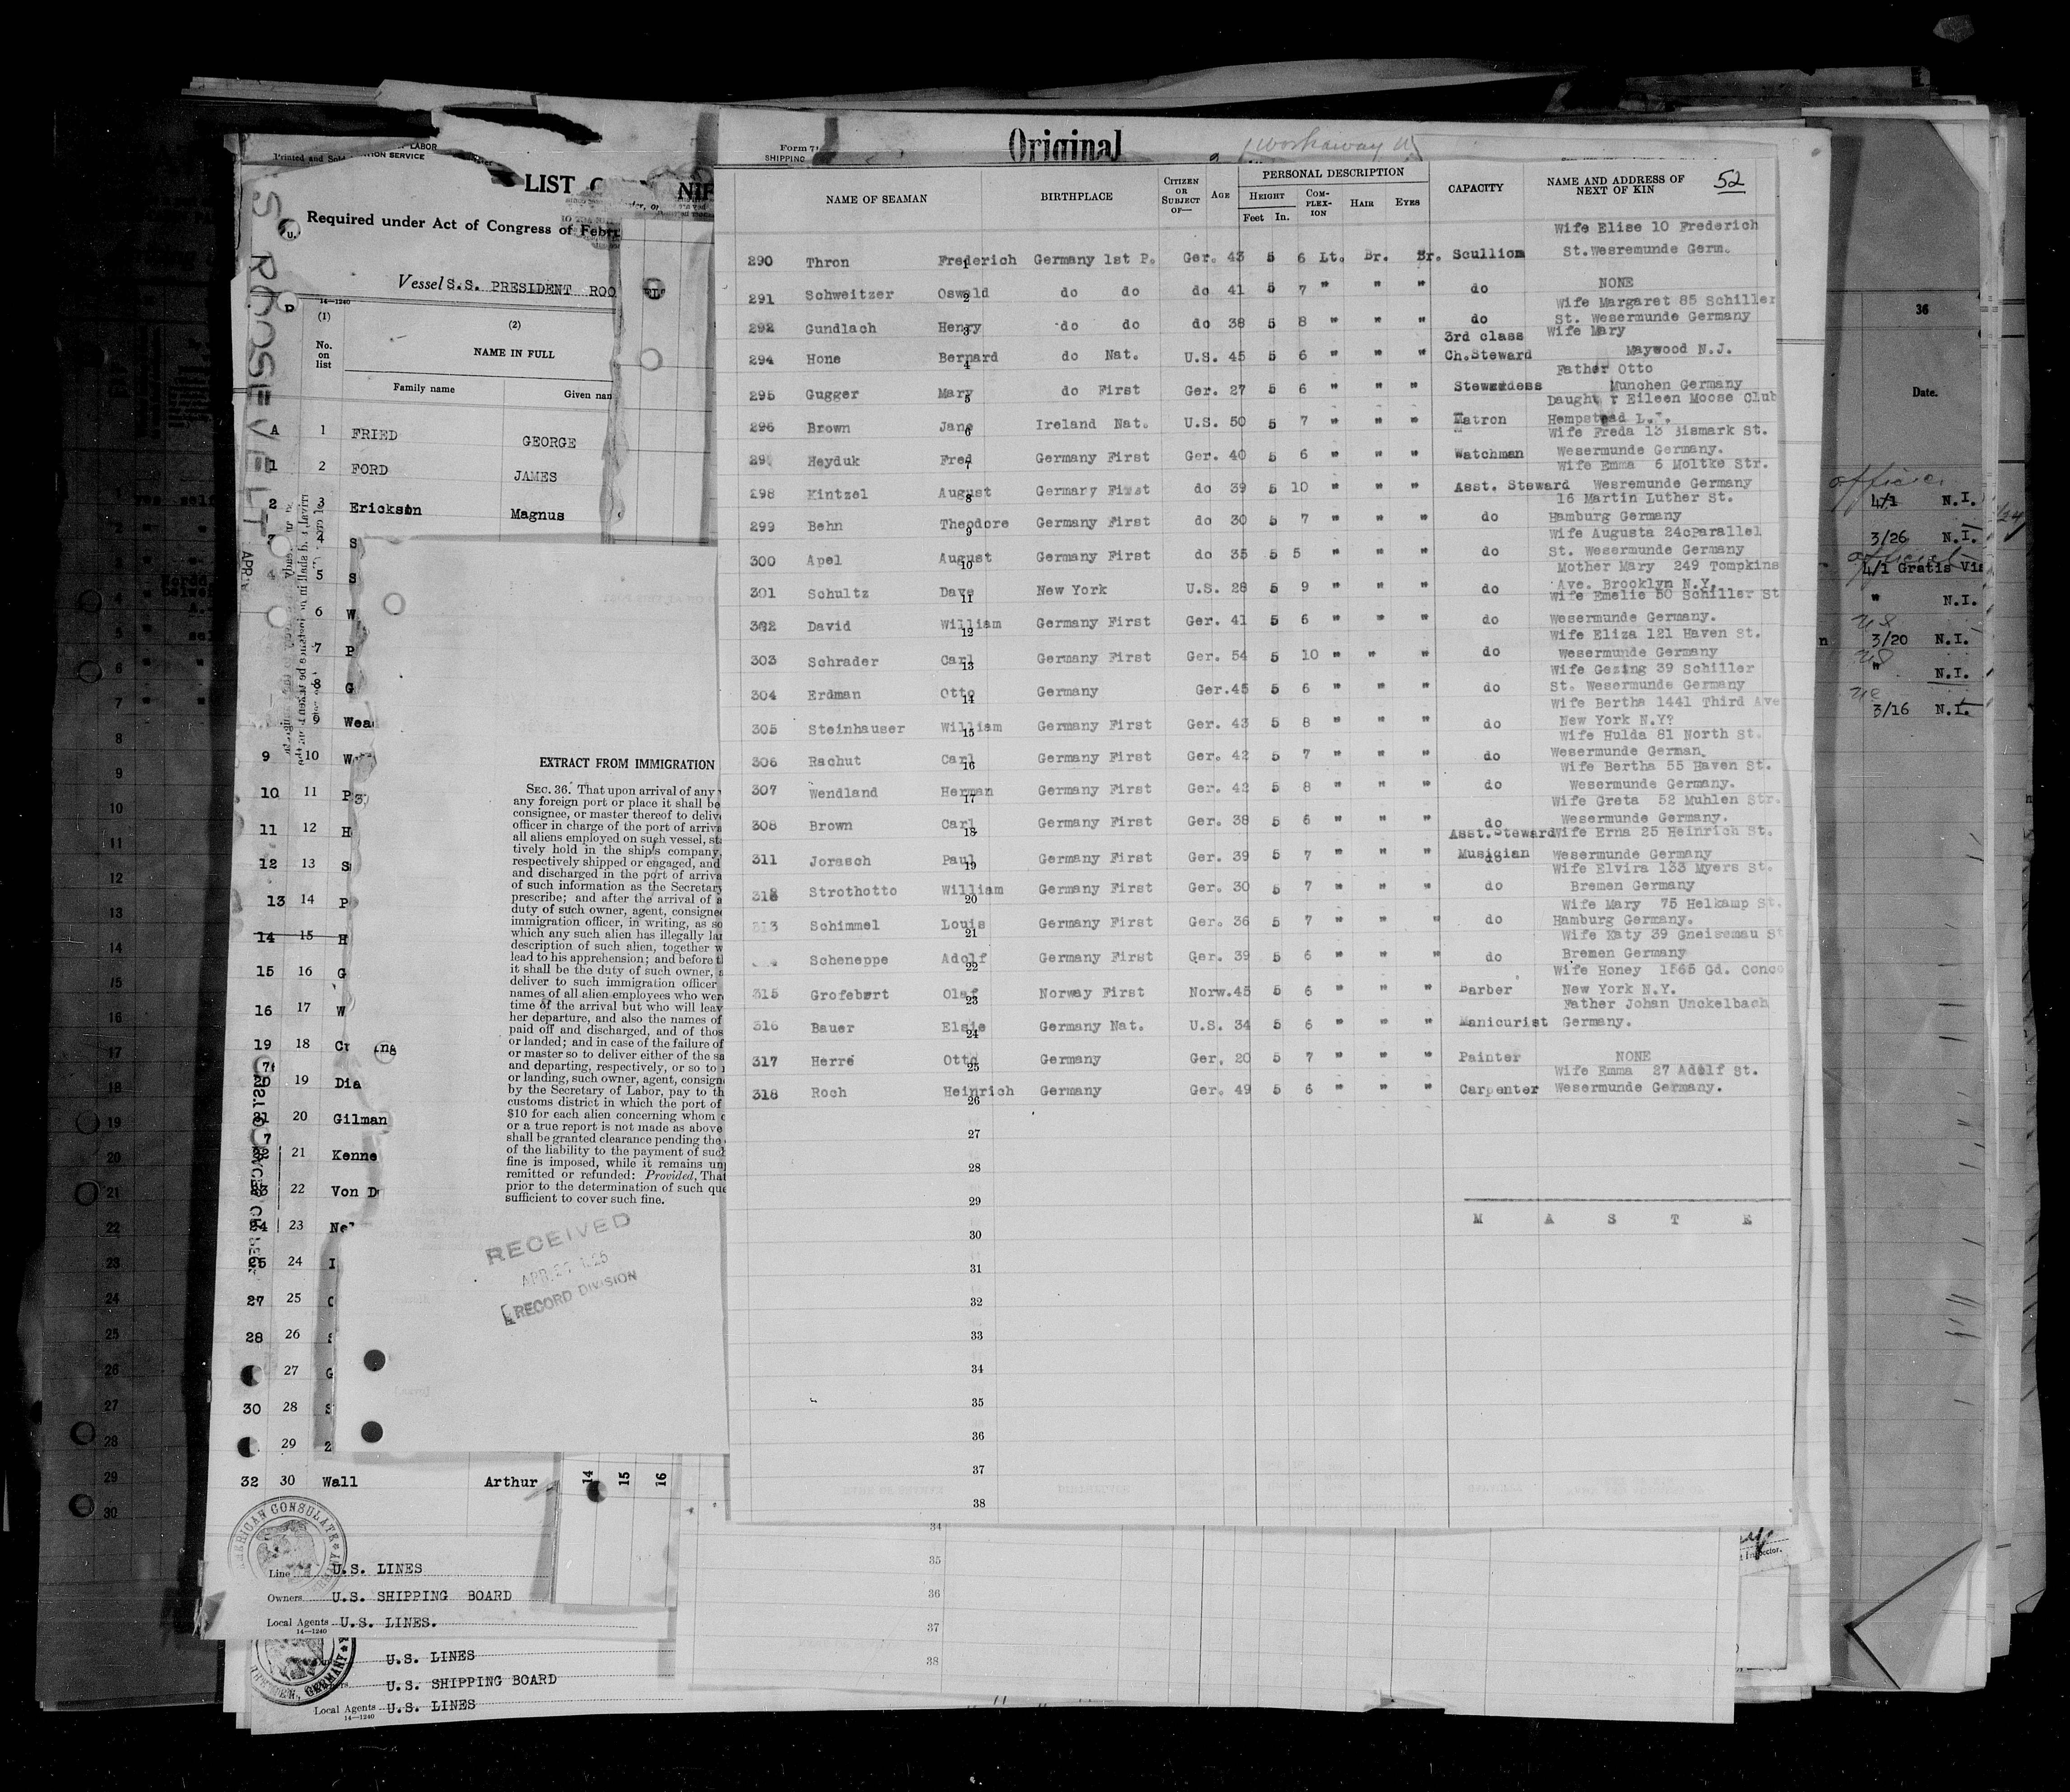 Original
Form 71
SHIPPING
LABOR
Printed and Sold
TION SERVICE
LIST
Required under Act of Congress of Febr
Vessel S.S. PRESIDENT ROO
16—1240
(1)
(2)
No. on list
NAME IN FULL
Family name
Given nam
A 1 FRIED GEORGE
1 2 FORD JAMES
2 3 Erickson Magnus
4 S
5 S
6 W
7 P
8 G
9 Wea
9 10 W
10 11 P
11 12 H
12 13 S
13 14 P
14 15 H
15 16 G
16 17 W
19 18 Cu ing
20 19 Dia
21 20 Gilman
22 21 Kenne
23 22 Von D
24 23 Ne
25 24 I
27 25
28 26
27 G
30 28 S
29
32 30 Wall Arthur
14 15 16
AMERICAN CONSULATE
Line U.S. LINES
Owners U.S. SHIPPING BOARD
Local Agents U.S. LINES.
14—1240
U.S. LINES
U.S. SHIPPING BOARD
Local Agents U.S. LINES
14—1240
EXTRACT FROM IMMIGRATION
SEC. 36. That upon arrival of any
any foreign port or place it shall be
consignee, or master thereof to deliv
officer in charge of the port of arriva
all aliens employed on such vessel, sta
tively hold in the ship's company,
respectively shipped or engaged, and
and discharged in the port of arriva
of such information as the Secretary
prescribe; and after the arrival of a
duty of such owner, agent, consignee
immigration officer, in writing, as so
which any such alien has illegally lan
description of such alien, together w
lead to his apprehension; and before t
it shall be the duty of such owner, a
deliver to such immigration officer
names of all alien employees who were
time of the arrival but who will leav
her departure, and also the names of
paid off and discharged, and of thos
or landed; and in case of the failure of
or master so to deliver either of the sa
and departing, respectively, or so to
or landing, such owner, agent, consign
by the Secretary of Labor, pay to th
customs district in which the port of
$10 for each alien concerning whom
or a true report is not made as above
shall be granted clearance pending the
of the liability to the payment of such
fine is imposed, while it remains un
remitted or refunded: Provided, That
prior to the determination of such que
sufficient to cover such fine.
RECEIVED
RECORD DIVISION
NAME OF SEAMAN BIRTHPLACE CITIZEN OR SUBJECT OF— AGE PERSONAL DESCRIPTION CAPACITY NAME AND ADDRESS OF NEXT OF KIN 52
HEIGHT COMPLEXION HAIR EYES
Feet In.
Wife Elise 10 Frederich
290 Thron Frederich 1 Germany 1st P. Ger. 43 5 6 Lt. Br. Br. Scullion St. Wesremunde Germ.
291 Schweitzer Oswald 2 do do do 41 5 7 " " " do NONE
Wife Margaret 85 Schiller
292 Gundlach Henry 3 do do do 38 5 8 " " " do St. Wesermunde Germany
3rd class Wife Mary
294 Hone Bernard 4 do Nat. U.S. 45 5 6 " " " Ch.Steward Maywood N.J.
Father Otto
295 Gugger Mary 5 do First Ger. 27 5 6 " " " Stewardess Munchen Germany
Daught r Eileen Moose Club
296 Brown Jane 6 Ireland Nat. U.S. 50 5 7 " " " Matron Hempstead L.I.
Wife Freda 13 Bismark St.
29 Heyduk Fred 7 Germany First Ger. 40 5 6 " " " Watchman Wesermunde Germany.
Wife Emma 6 Moltke Str.
298 Kintzel August 8 Germany First do 39 5 10 " " " Asst. Steward Wesremunde Germany
16 Martin Luther St.
299 Behn Theodore 9 Germany First do 30 5 7 " " " do Hamburg Germany
Wife Augusta 24cParallel
300 Apel August 10 Germany First do 35 5 5 " " " do St. Wesermunde Germany
Mother Mary 249 Tompkins
301 Schultz Dave 11 New York U.S. 28 5 9 " " " do Ave. Brooklyn N.Y.
Wife Emelie 50 Schiller St
302 David William 12 Germany First Ger. 41 5 6 " " " do Wesermunde Germany.
Wife Eliza 121 Haven St.
303 Schrader Carl 13 Germany First Ger. 54 5 10 " " " do Wesermunde Germany
Wife Gezing 39 Schiller
304 Erdman Otto 14 Germany Ger.45 5 6 " " " do St. Wesermunde Germany
Wife Bertha 1441 Third Ave
305 Steinhauser William 15 Germany First Ger. 43 5 8 " " " do New York N.Y?
Wife Hulda 81 North St.
306 Rachut Carl 16 Germany First Ger. 42 5 7 " " " do Wesermunde German
Wife Bertha 55 Haven St.
307 Wendland Herman 17 Germany First Ger. 42 5 8 " " " do Wesermunde Germany.
Wife Greta 52 Muhlen Str.
308 Brown Carl 18 Germany First Ger. 38 5 6 " " " do Wesermunde Germany.
Asst.Steward Wife Erna 25 Heinrich St.
311 Jorasch Paul 19 Germany First Ger. 39 5 7 " " " Musician Wesermunde Germany
Wife Elvira 133 Myers St.
312 Strothotto William 20 Germany First Ger. 30 5 7 " " " do Bremen Germany
Wife Mary 75 Helkamp St.
313 Schimmel Louis 21 Germany First Ger. 36 5 7 " " " do Hamburg Germany.
Wife Katy 39 Gneisemau St
Scheneppe Adolf 22 Germany First Ger. 39 5 6 " " " do Bremen Germany
Wife Honey 1565 Gd. Conco
315 Grofebert Olaf 23 Norway First Norw.45 5 6 " " " Barber New York N.Y.
Father Johan Unckelbach
316 Bauer Elsie 24 Germany Nat. U.S. 34 5 6 " " " Manicurist Germany.
317 Herre Otto 25 Germany Ger. 20 5 7 " " " Painter NONE
Wife Emma 27 Adolf St.
318 Roch Heinrich 26 Germany Ger. 49 5 6 " " " Carpenter Wesermunde Germany.
27
28
29
30
M A S T E
31
32
33
34
35
36
37
38
34
35
36
37
38
36
Date.
4/1 N.I.
3/26 N.I.
4/1 Gratis Vis
" N.I.
3/20 N.I.
" N.I.
3/16 N.I.